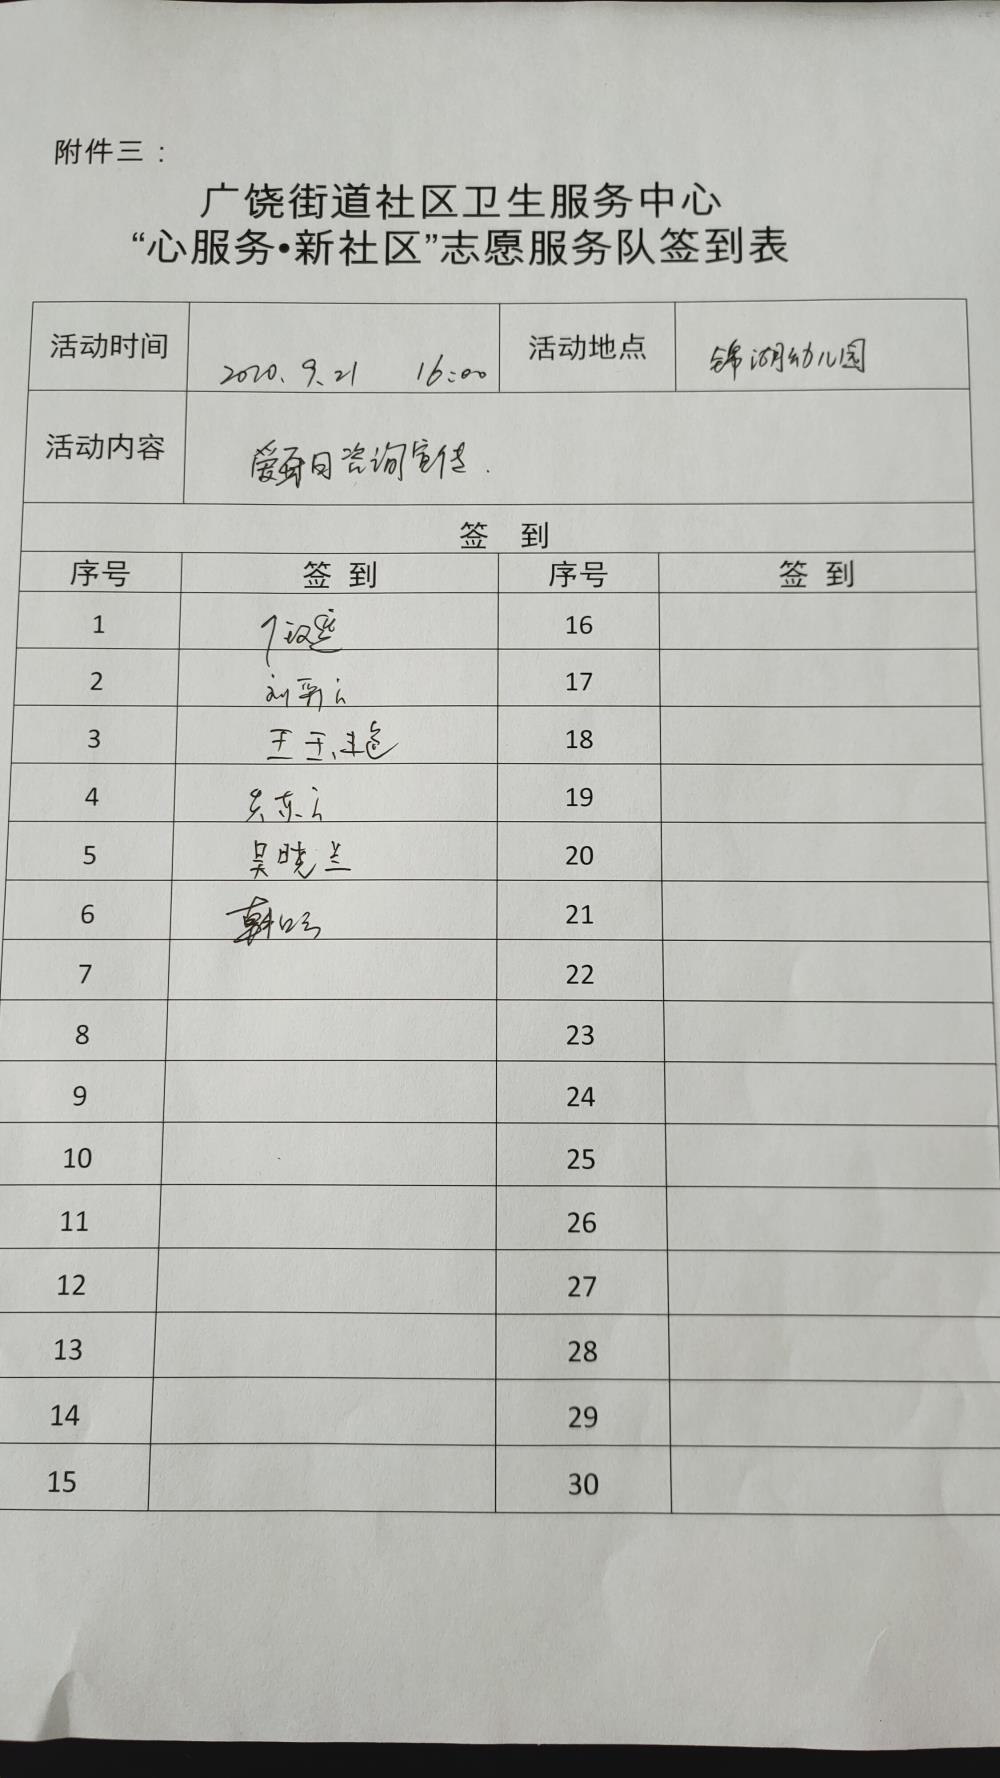 附件三：
广饶街道社区卫生服务中心
“心服务•新社区”志愿服务队签到表
活动时间 2020.9.21 16:00 活动地点 锦湖幼儿园
活动内容 爱牙日咨询宣传.
签 到
序号 签 到 序号 签 到
1 16
2 刘 17
3 王玉 18
4 东 19
5 吴晓兰 20
6 韩 21
7 22
8 23
9 24
10 25
11 26
12 27
13 28
14 29
15 30